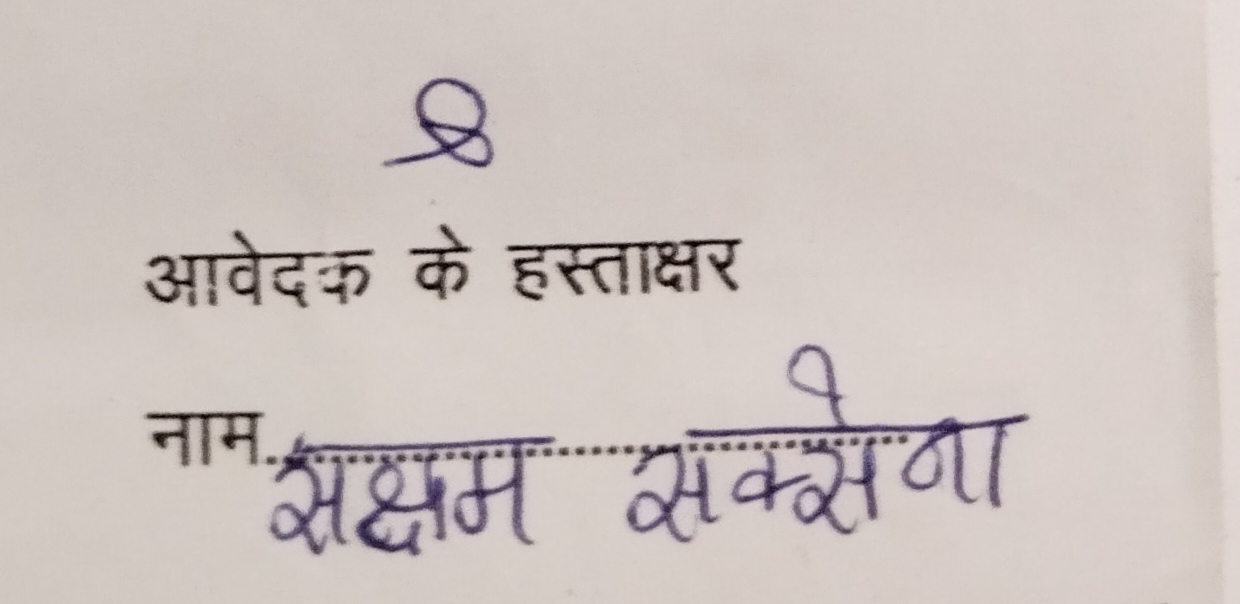 आवेदक के हस्ताक्षर
नाम सक्षम सक्सेना